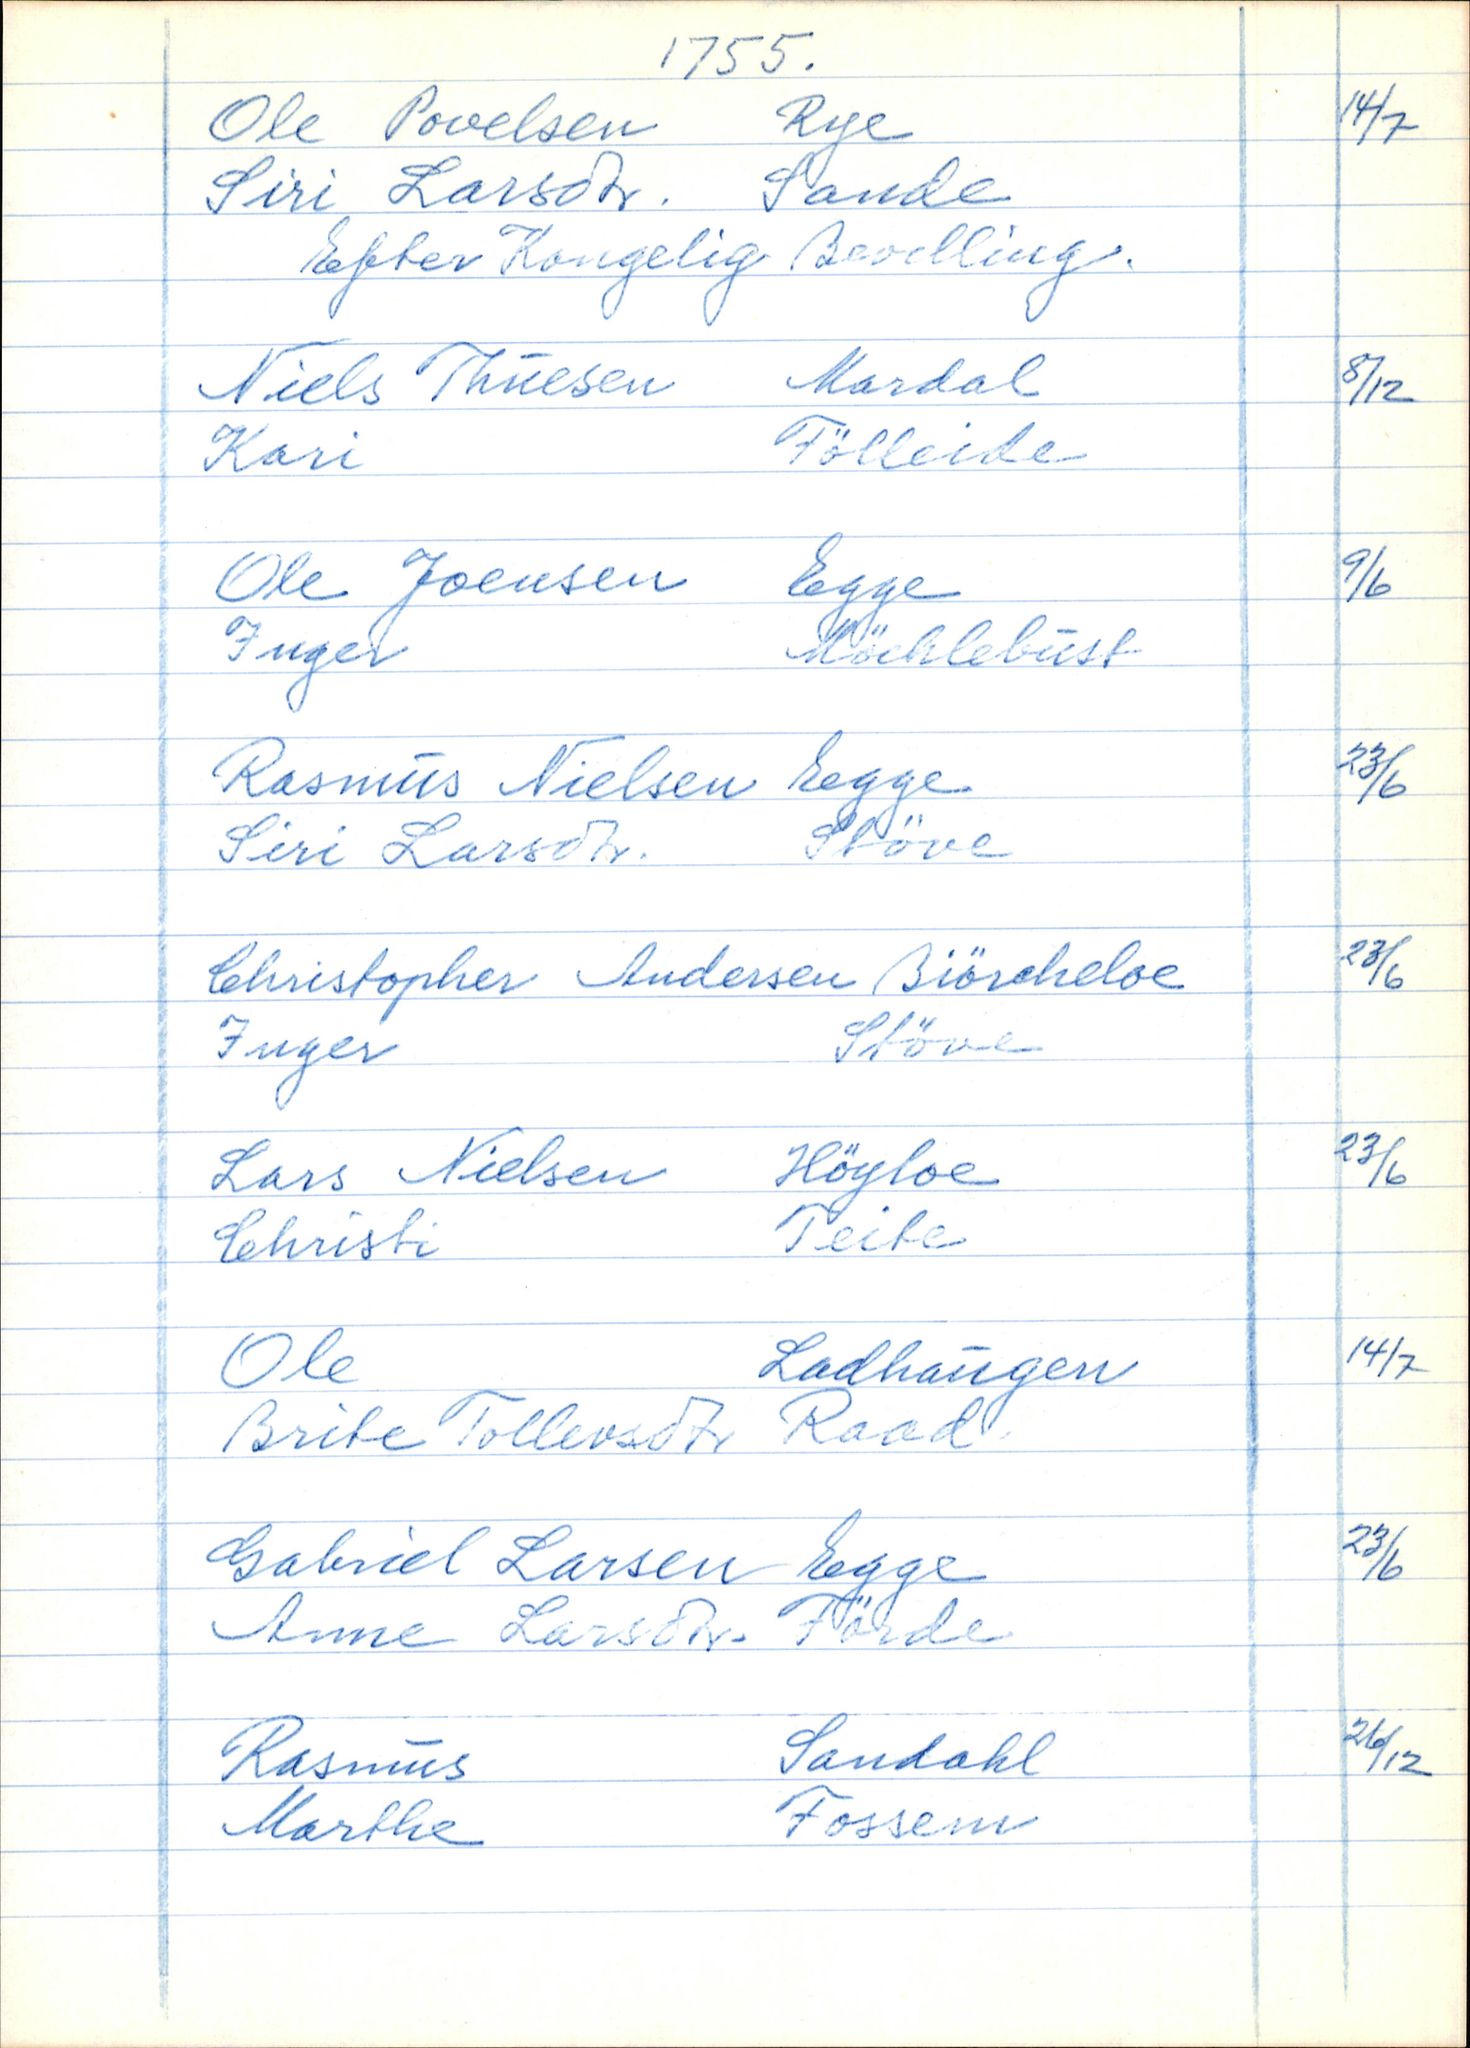 1755.
Ole Povelsen Rye 14/7
Siri Larsdtr. Sande
Efter Kongelig Bevilling.
Niels Thuesen Mardal 8/12
Kari Fölleide
Ole Joensen Egge 9/6
Inger Möchlebust
Rasmus Nielsen Egge 23/6
Siri Larsdtr. Støve
Christopher Andersen Biörcheloe 23/6
Inger Støve
Lars Nielsen Höyloe 23/6
Christi Teite
Ole Ladhaugen 14/7
Brite Tollevsdtr Raad.
Gabriel Larsen Egge 23/6
Anne Larsdtr. Förde
Rasmus Sandahl 26/12
Marthe Fossem